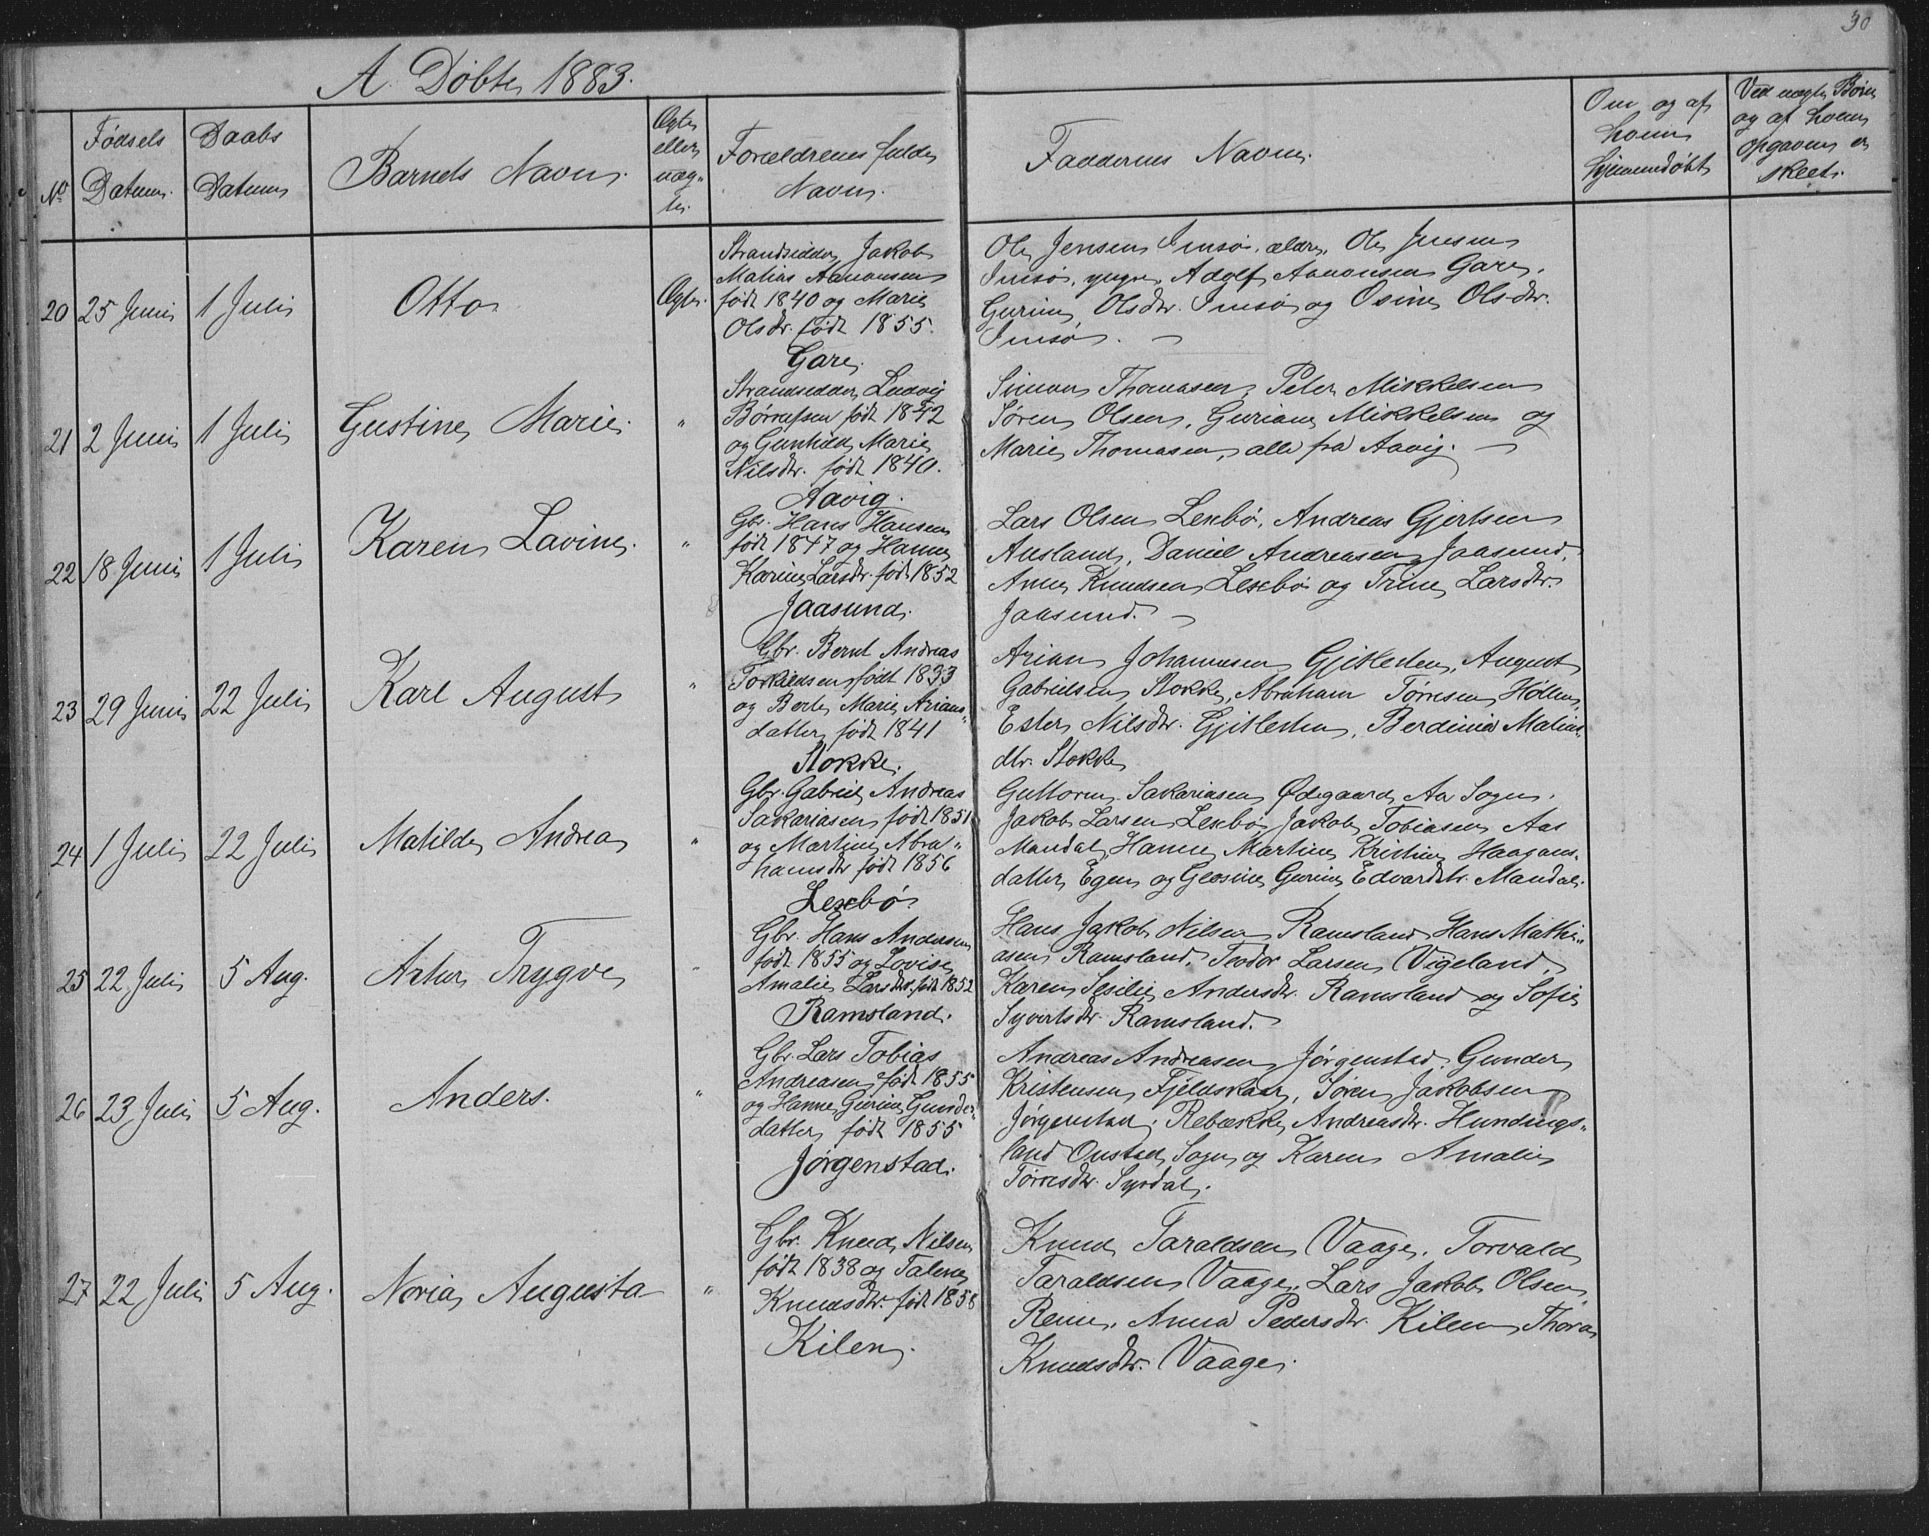 30
A. Døbte 1883.
No
Fødsels
Datum.
Daabs
Datum
Barnets Navn.
Ægte
eller
uæg-
te.
Forældrenes fulde
Navn.
Faddernes Navne.
Om og af
hvem
hjemmedøbt
Ved uægte Børn
og af hvem
opgaven er
skeet.
20 25 Juni 1 Juli Otto Ægte.
Strandsidder Jakob
Matias Aanonsen
født 1840 og Marie
Olsdtr. født 1855.
Gare.
Ole Jensen Imsø, ældre, Ole Jensen
Imsø, yngre, Adolf Aanonsen Gare,
Gurine Olsdtr. Imsø og Osine Olsdtr.
Imsø. —
21 2 Juni 1 Juli Gustine Marie. "
Strandsidder Ludvig
Børresen født 1842
og Gunhild Marie
Nilsdtr. født 1840.
Aavig.
Simon Thomasen, Peter Mikkelsen
Søren Olsen, Guriane Mikkelsen og
Marie Thomasen, alle fra Aavig. —
22 18 Juni 1 Juli Karen Lavine. "
Gbr. Hans Hansen
født 1847 og Hanne
Karine Larsdtr. født 1852
Jaasund.
Lars Olsen Lexbø, Andreas Gjertsen
Ausland, Daniel Andreasen Jaasund,
Anne Knudsen Lexbø og Trine Larsdtr.
Jaasund. —
23 29 Juni 22 Juli Karl August "
Gbr. Bernt Andreas
Torkildsen født 1833
og Berte Marie Arians-
datter født 1841
Stokke.
Arian Johannesen Gjitlesten, August
Gabrielsen Stokke, Abraham Tørresen Høllen,
Ester Nilsdtr. Gjitlesten, Berdinia Matias-
dtr. Stokke
24 1 Juli 22 Juli Matilde Andrea "
Gbr. Gabriel Andreas
Sakariasen født 1851
og Martine Abra-
hamsdtr født 1856
Lexbø
Guttorm Sakariasen Ødegaard, Aa Sogn,
Jakob Larsen Lexbø, Jakob Tobiasen Aas
Mandal, Hanne Martine Kristine Haagens-
datter Egen og Gesine Gurine Edvardsdtr. Mandal.
25 22 Juli 5 Aug. Artur Trygve "
Gbr. Hans Andersen
født 1855 og Lovise
Amalie Larsdtr. født 1852
Ramsland.
Hans Jakob Nilsen Ramsland, Hans Mathi-
asen Ramsland, Teodor Larsen Vigeland,
Karen Sesilie Andersdtr. Ramsland og Sofie
Syvertsdtr. Ramsland.
26 23 Juli 5 Aug. Anders. "
Gbr. Lars Tobias
Andreasen født 1855
og Hanne Gurine Gunder-
datter født 1855
Jørgenstad.
Andreas Andreasen Jørgenstad, Gunder
Kristensen Fjeldskaar, Søren Jakobsen
Jørgenstad, Rebækka Andreasdtr. Hundings-
land Onstad Sogn og Karen Amalie
Tørresdtr. Syrdal.
27 22 Juli 5 Aug. Noria Augusta "
Gbr. Knud Nilsen
født 1838 og Talene
Knudsdtr. født 1858
Kilen.
Knud Taraldsen Vaage, Torvald
Taraldsen Vaage, Lars Jakob Olsen
Reme, Anna Pedersdtr. Kilen, Thora
Knudsdtr. Vaage.